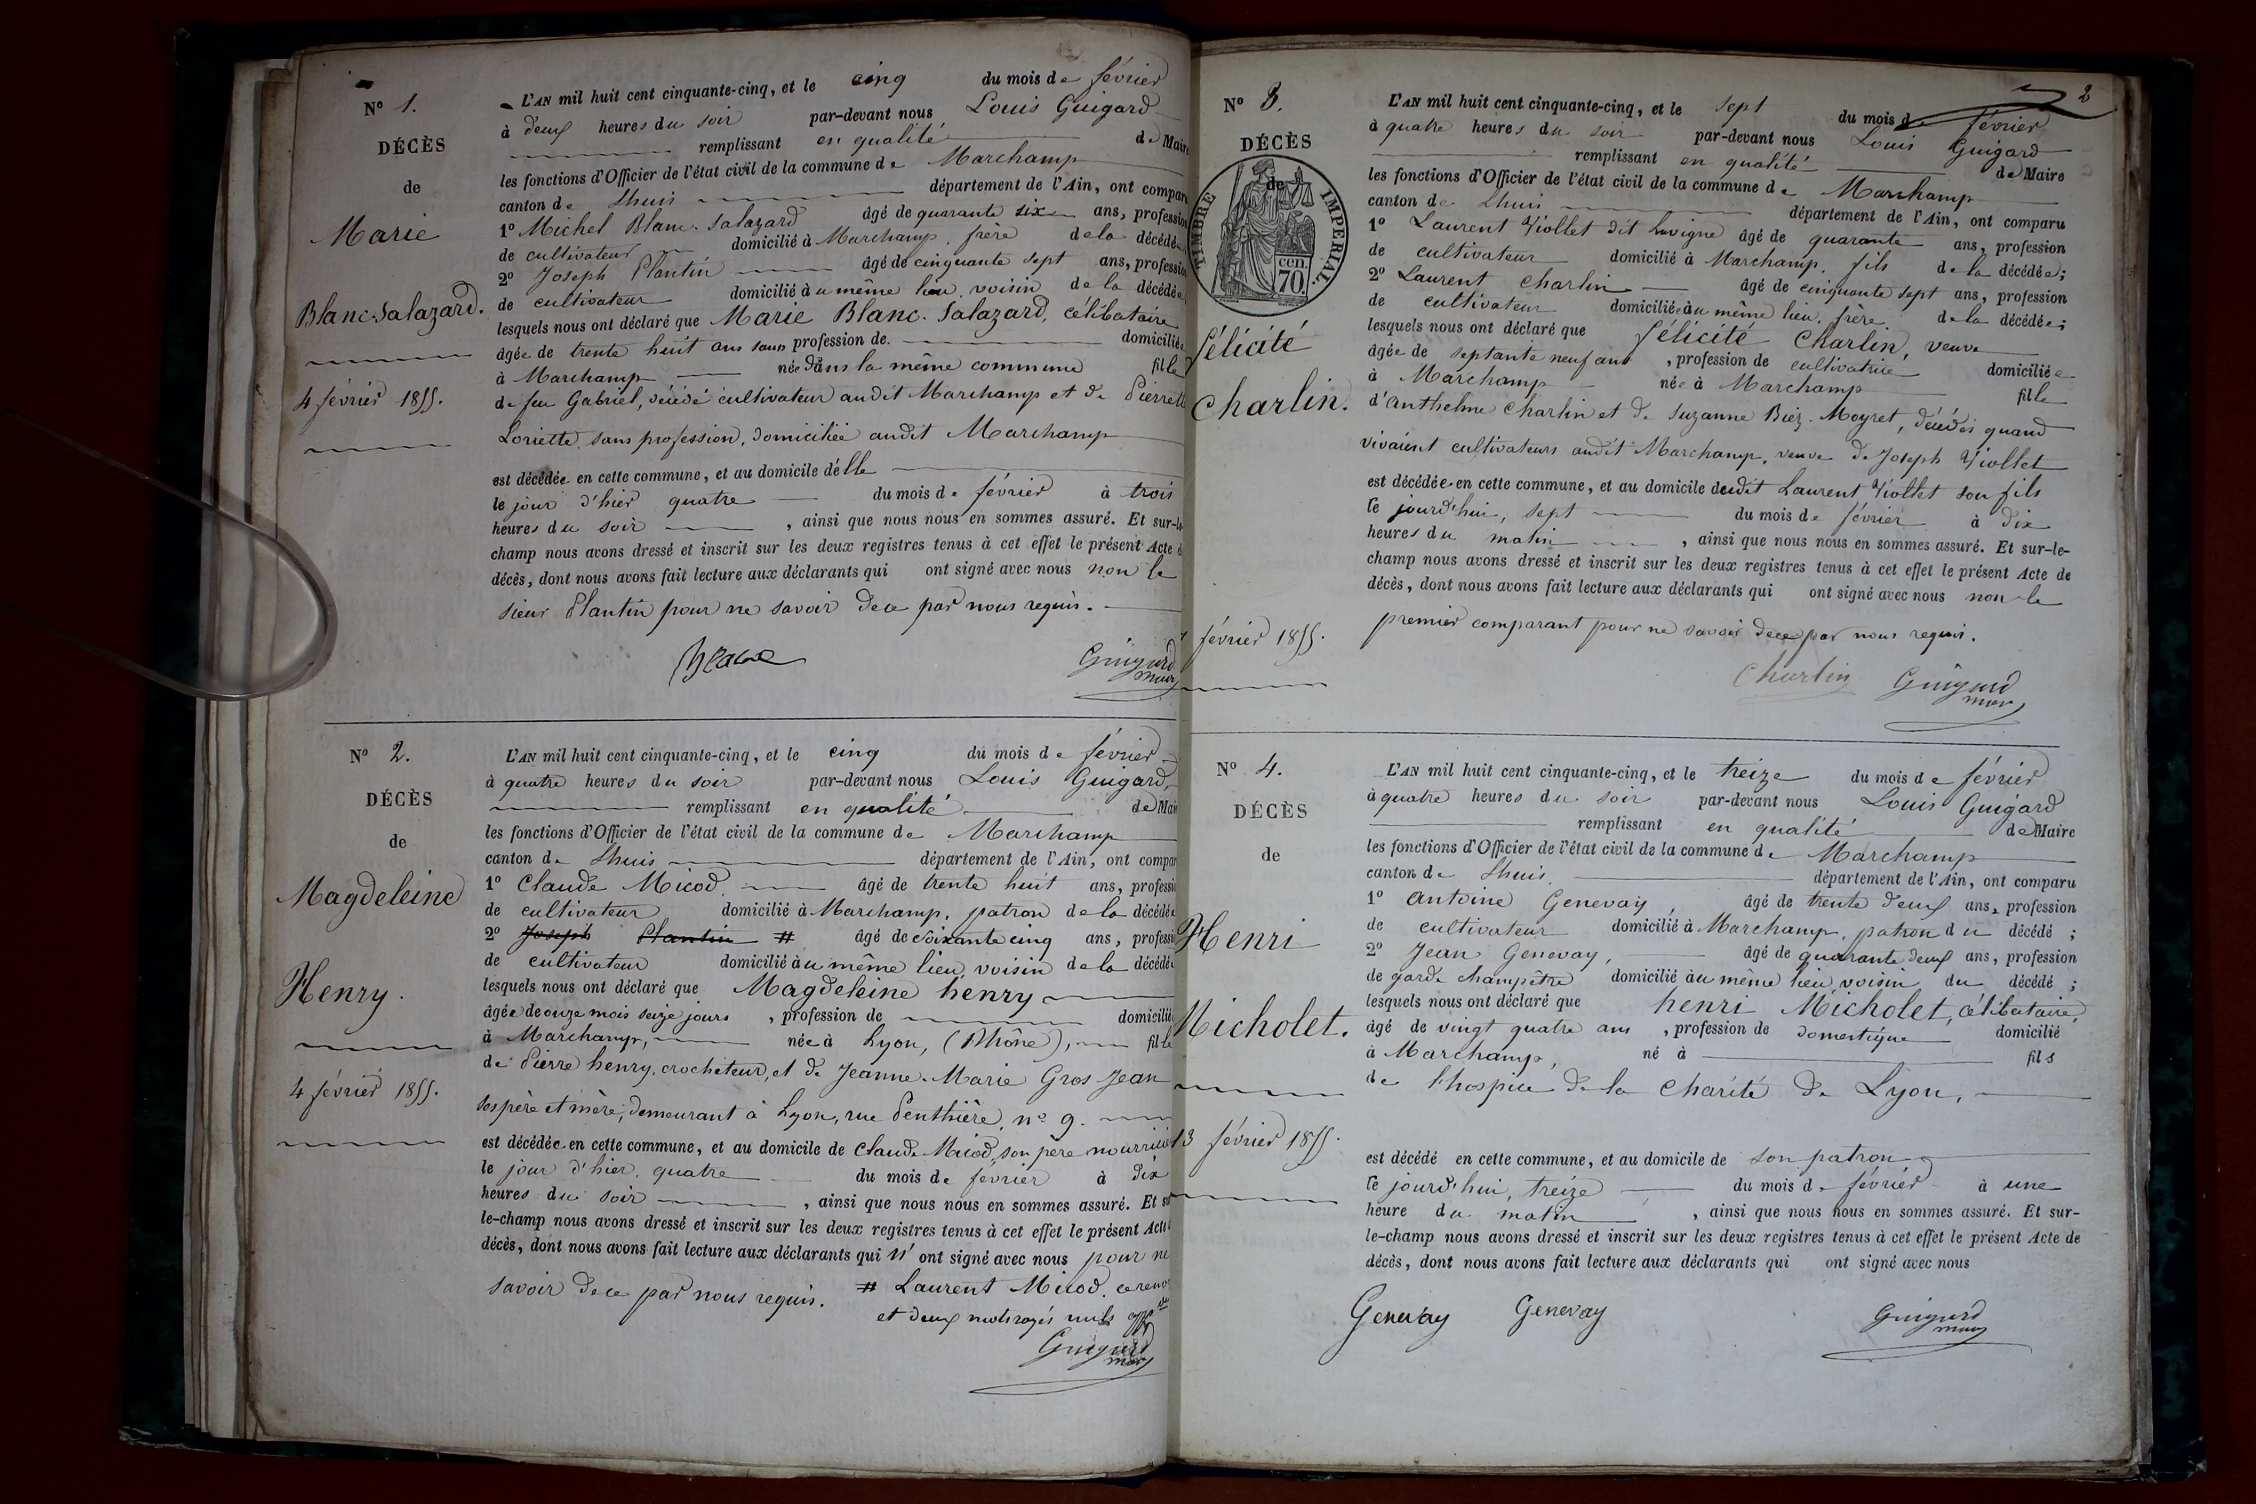 N° 1.
DÉCÈS
de
Marie
Blanc-Salazard.
4 février 1855.
L'AN mil huit cent cinquante-cinq, et le cinq du mois de février
à deux heures du soir par-devant nous Louis Guigard
remplissant en qualité de Maire
les fonctions d'Officier de l'état civil de la commune de Marchamp
canton de Lhuis département de l'Ain, ont comparu
1° Michel Blanc-Salazard âgé de quarante six ans, profession
de cultivateur domicilié à Marchamp, frère de la décédée
2° Joseph Plantin âgé de cinquante sept ans, profession
de cultivateur domicilié au même lieu, voisin de la décédée
lesquels nous ont déclaré que Marie Blanc-Salazard, célibataire
âgée de trente huit ans sans profession de domiciliée
à Marchamp née dans la même commune fille
de feu Gabriel, décédé cultivateur audit Marchamp et de Pierrette
Loriette, sans profession, domiciliée audit Marchamp
est décédée en cette commune, et au domicile d'elle
le jour d'hier quatre du mois de février à trois
heures du soir, ainsi que nous nous en sommes assuré. Et sur-le-
champ nous avons dressé et inscrit sur les deux registres tenus à cet effet le présent Acte d
décès, dont nous avons fait lecture aux déclarants qui ont signé avec nous non le
sieur Plantin pour ne savoir de ce par nous requis.
Blanc Guigard
maire
N° 2.
DÉCÈS
de
Magdeleine
Henry.
4 février 1855.
L'AN mil huit cent cinquante-cinq, et le cinq du mois de février
à quatre heures du soir par-devant nous Louis Guigard,
remplissant en qualité de Maire
les fonctions d'Officier de l'état civil de la commune de Marchamp
canton de Lhuis département de l'Ain, ont compar
1° Claude Micod âgé de trente huit ans, professi
de cultivateur domicilié à Marchamp, patron de la décédée
2° Joseph Plantin # âgé de soixante cinq ans, professi
de cultivateur domicilié au même lieu, voisin de la décédé
lesquels nous ont déclaré que Magdeleine henry
âgée de onze mois seize jours, profession de domiciliée
à Marchamp, née à Lyon, (Rhône), fille
de Pierre henry, crocheteur, et de Jeanne-Marie Gros Jean
ses père et mère, demeurant à Lyon, rue Penthière, n° 9.
est décédée en cette commune, et au domicile de Claude Micod, son père nourricier
le jour d'hier, quatre du mois de février à dix
heures du soir, ainsi que nous nous en sommes assuré. Et su
le-champ nous avons dressé et inscrit sur les deux registres tenus à cet effet le présent Acte
décès, dont nous avons fait lecture aux déclarants qui n'ont signé avec nous pour ne
savoir de ce par nous requis. # Laurent Micod. ce renv
et deux mots rayés nuls
Guigard
maire
2
N° 3.
DÉCÈS
de
TIMBRE IMPÉRIAL.
cen. 70.
Félicité
Charlin.
7 février 1855.
L'AN mil huit cent cinquante-cinq, et le sept du mois de février
à quatre heures du soir par-devant nous Louis Guigard
remplissant en qualité de Maire
les fonctions d'Officier de l'état civil de la commune de Marchamp
canton de Lhuis département de l'Ain, ont comparu
1° Laurent Viollet dit Lavigne âgé de quarante ans, profession
de cultivateur domicilié à Marchamp, fils de la décédée;
2° Laurent Charlin âgé de cinquante sept ans, profession
de cultivateur domicilié au même lieu, frère de la décédée;
lesquels nous ont déclaré que félicité Charlin, veuve
âgée de septante neuf ans, profession de cultivatrice domiciliée
à Marchamp née à Marchamp fille
d'Anthelme Charlin et de Suzanne Biez-Moyret, décédés quand
vivaient cultivateurs audit Marchamp, veuve de Joseph Viollet
est décédée en cette commune, et au domicile dudit Laurent Viollet son fils
le jourd'hui, sept du mois de février à dix
heures du matin, ainsi que nous nous en sommes assuré. Et sur-le-
champ nous avons dressé et inscrit sur les deux registres tenus à cet effet le présent Acte de
décès, dont nous avons fait lecture aux déclarants qui ont signé avec nous non le
premier comparant pour ne savoir de ce par nous requis.
Charlin Guigard
maire
N° 4.
DÉCÈS
de
Henri
Micholet.
13 février 1855.
L'AN mil huit cent cinquante-cinq, et le treize du mois de février
à quatre heures du soir par-devant nous Louis Guigard
remplissant en qualité de Maire
les fonctions d'Officier de l'état civil de la commune de Marchamp
canton de Lhuis. département de l'Ain, ont comparu
1° Antoine Genevay, âgé de trente deux ans, profession
de cultivateur domicilié à Marchamp, patron du décédé;
2° Jean Genevay, âgé de quarante deux ans, profession
de garde champêtre domicilié au même lieu, voisin du décédé;
lesquels nous ont déclaré que henri Micholet, célibataire,
âgé de vingt quatre ans, profession de domestique domicilié
à Marchamp, né à fils
de l'hospice de la Charité de Lyon,
est décédé en cette commune, et au domicile de son patron
le jourd'hui, treize du mois de février à une
heure du matin, ainsi que nous nous en sommes assuré. Et sur-
le-champ nous avons dressé et inscrit sur les deux registres tenus à cet effet le présent Acte de
décès, dont nous avons fait lecture aux déclarants qui ont signé avec nous
Genevay Genevay Guigard
maire